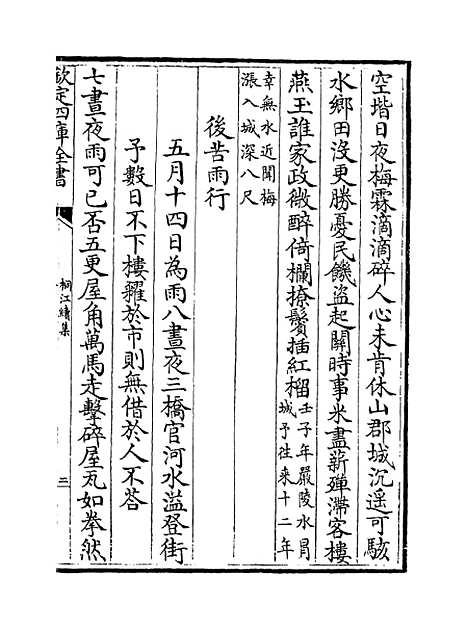 空堦日夜梅霖滴滴碎人心未肯休山郡城沉遥可駭
水鄉田没更勝憂民饑盗起闗時事米盡薪殫滯客樓
燕玉誰家政微醉倚欄撩鬢插紅榴壬子年嚴陵水冒
城予往来十二年
幸無水近聞梅
漲入城深八尺
後苦雨行
五月十四日為雨八晝夜三橋官河水溢登街
予數日不下樓糴於市則無借於人不答
七晝夜雨可已否五更屋角萬馬走擊碎屋瓦如拳然
欽定四庫全書
桐江續集
三